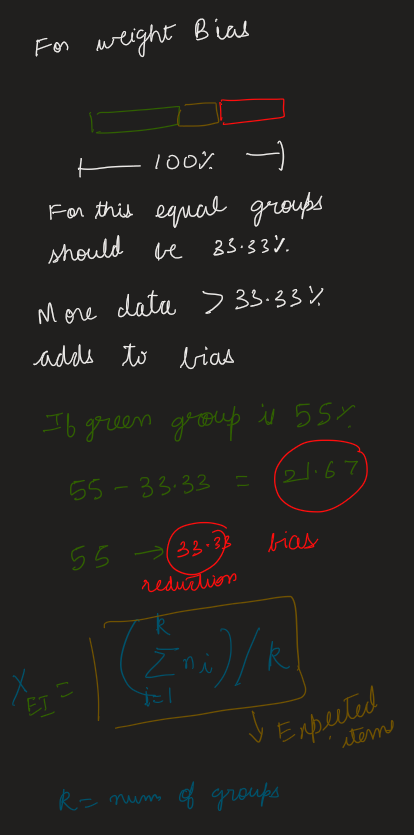 For weight Bias
100%
For this equal groups
should be 33.33%.
More data > 33.33%
adds to bias
If green group is 55%
55 - 33.33 = 21.67
55 → 33.33 bias
reduction
X_EI = (∑_{i=1}^{k} n_i) / k
Expected
items
k = nums of groups